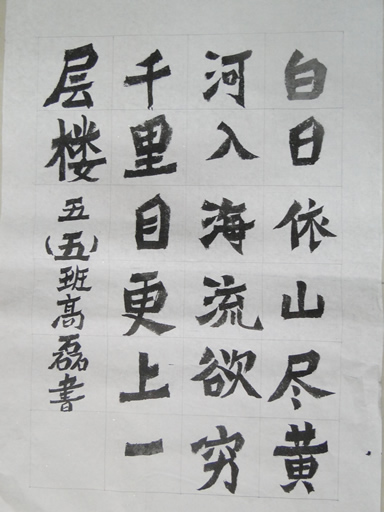 白日依山尽黄
河入海流欲穷
千里目更上一
层楼 五(五)班高磊书